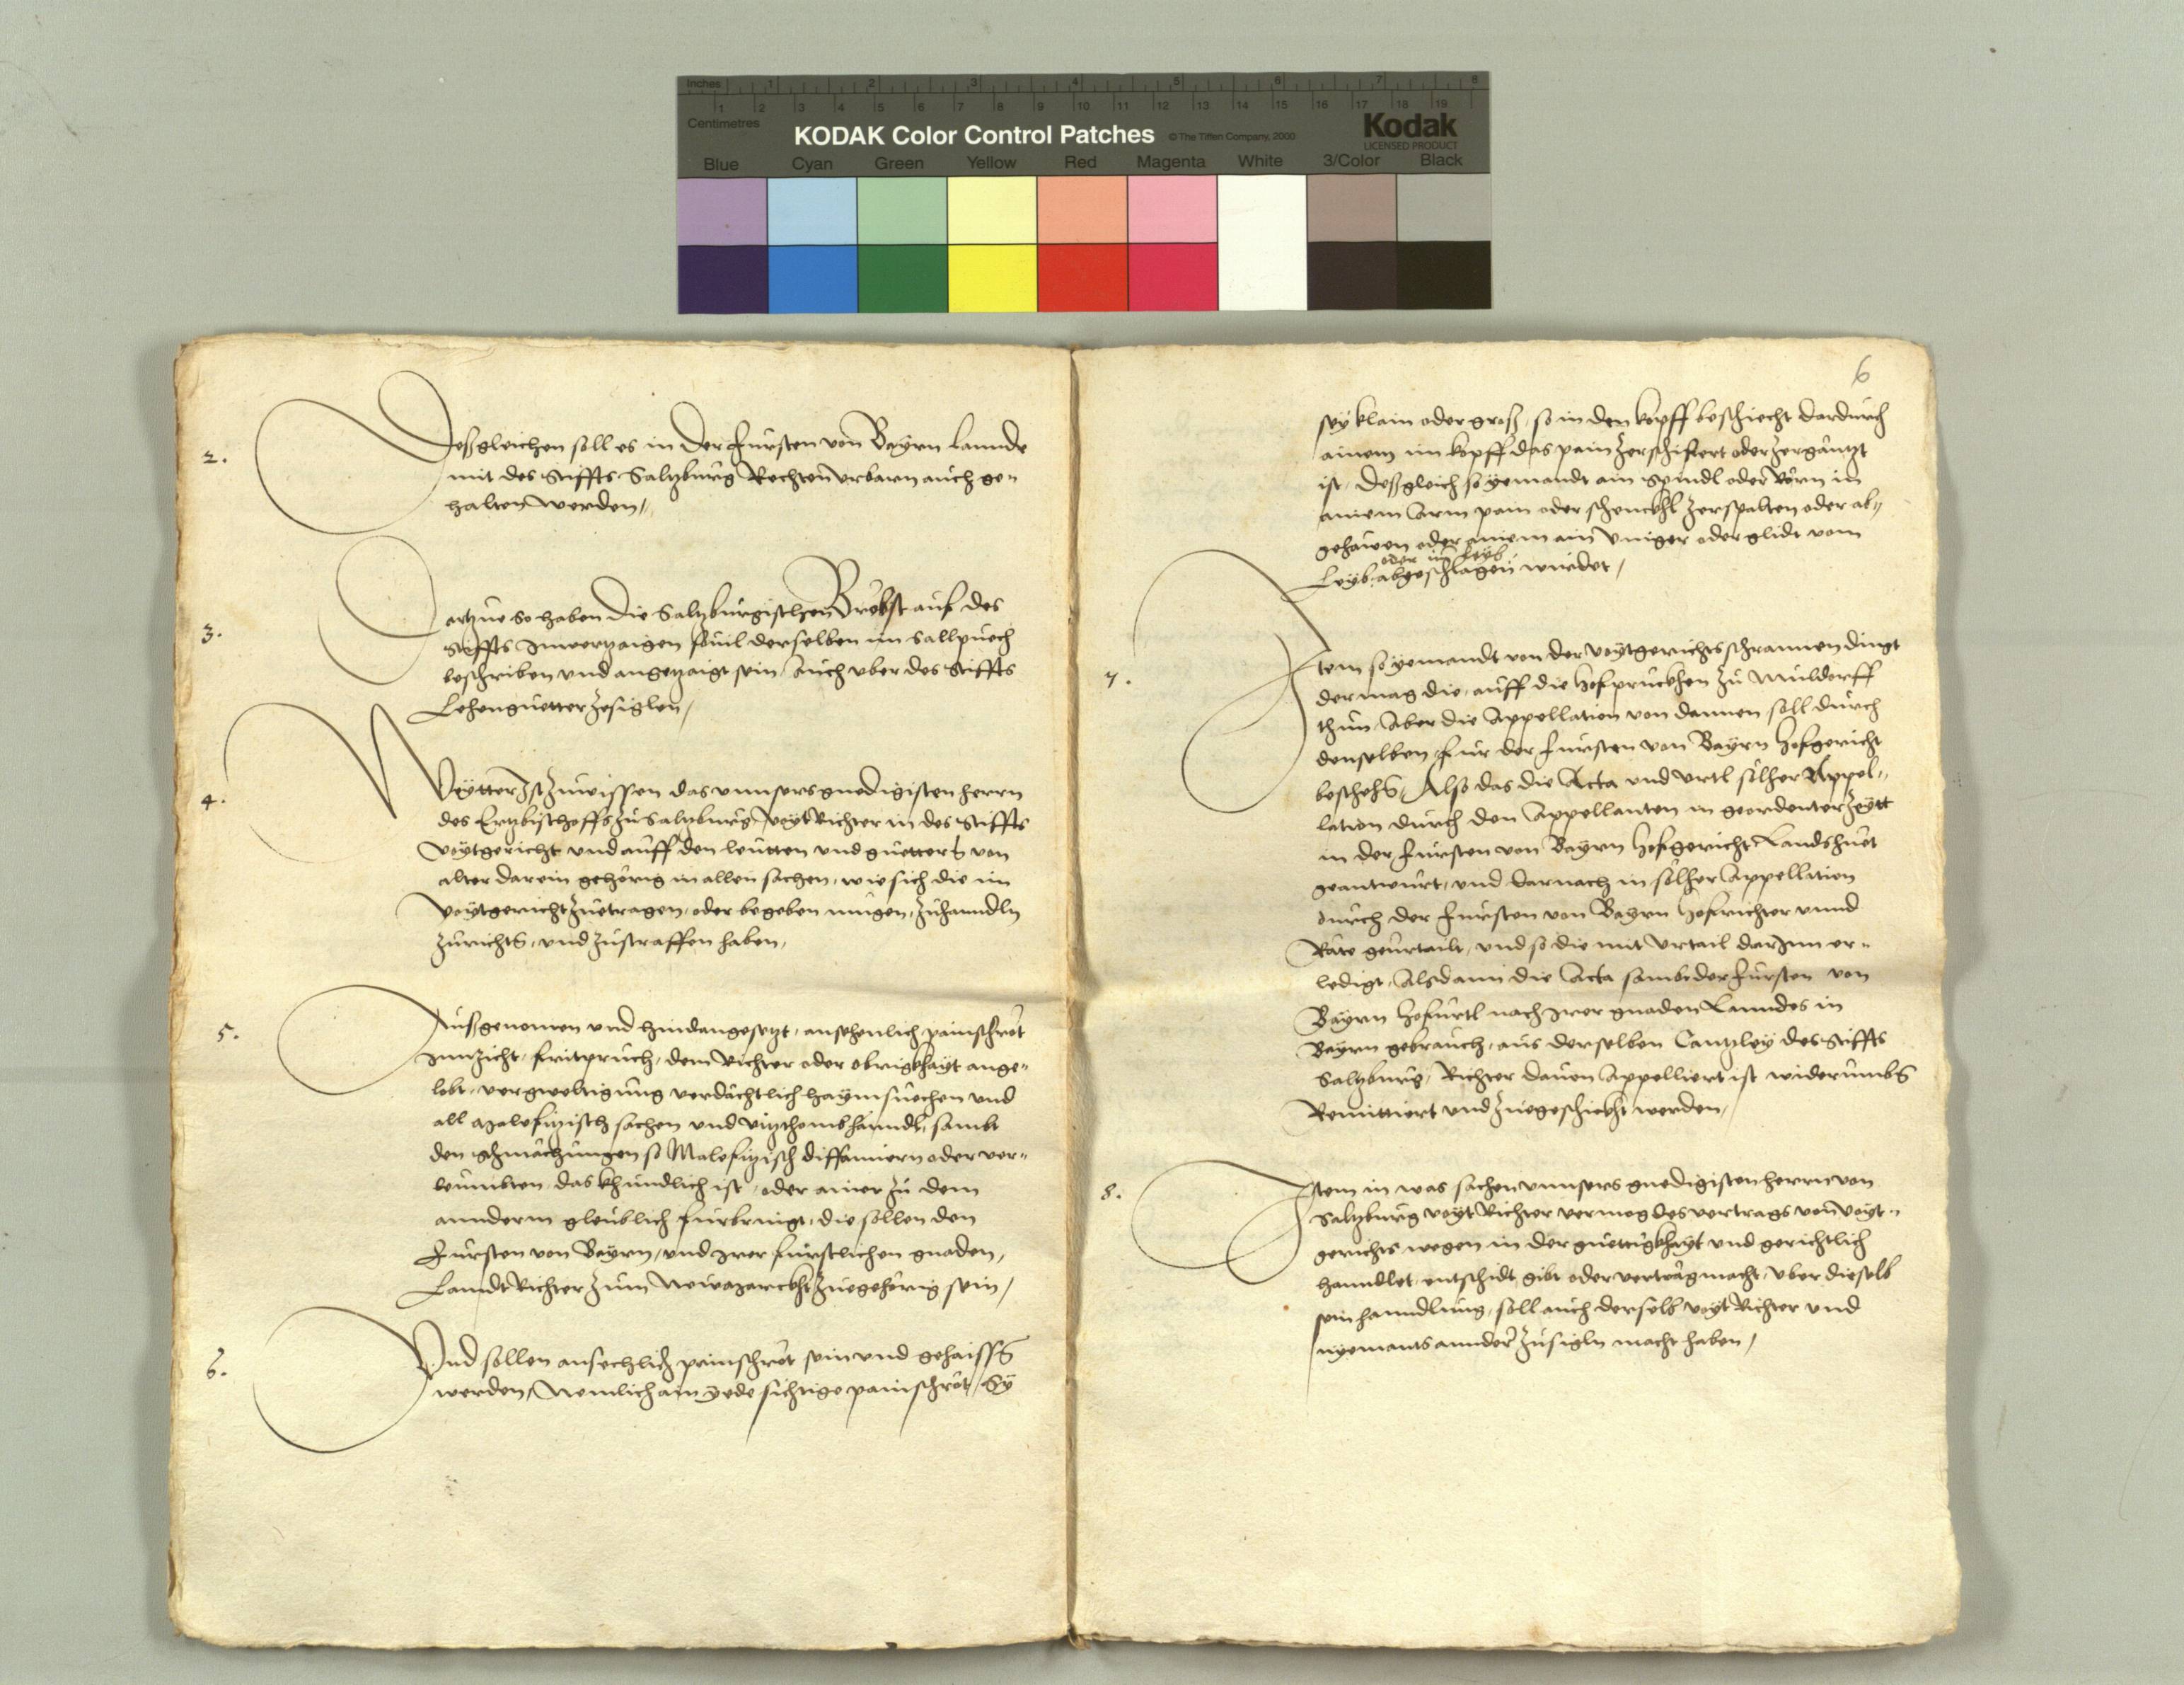 Inches 1 2 3 4 5 6 7 8
1 2 3 4 5 6 7 8 9 10 11 12 13 14 15 16 17 18 19
Centimetres
KODAK Color Control Patches © The Tiffen Company, 2000
Kodak
LICENSED PRODUCT
Blue Cyan Green Yellow Red Magenta White 3/Color Black
2.
Deßgleichen soll es in der Fursten von Bayrn Lannde
mit des Stiffts Saltzburg Rechten vrbarn auch ge=
halten werden,
3.
Dartzue so haben die Saltzburgischen Bröbst auf des
Stiffts Inwertzaigen souil derselben im Sallpuech
beschriben vnd angetzaigt sein, Auch vber des Stiffts
Lehenguetter zesiglen,
4.
Weytter Ist zuwissen das vnnsers gnedigisten herrn
des Ertzbischoffs zu Saltzburg VogtRichter in des Stiffts
Vogtgericht vnd auff den leutten vnd guettern von
alter darein gehörig in allen sachen, wie sich die im
Vogtgericht zuetragen, oder begeben mügen, zuhanndln
zurichten, vnd zustraffen haben,
5.
Außgenomen vnd hindangesetzt, ansehenlich painschröt
Innzicht, fridpruch, dem Richter oder obrigkhayt ange=
lobt, vergweltigung verdächtlich haymsuechen vnd
all Malefitzisch sachen vnd vitzthombhänndl, sambt
den schmachungen so Malefitzisch diffamiern oder ver=
leumbten, das khundlich ist, oder ainer zu dem
annderm gleublich furbringt, die sollen den
Fursten von Bayrn, vnd Irer furstlichen gnaden,
LanndtRichter zum Newmarckht zuegehörig sein,
6.
Vnd sollen ansechlich painschröt sein vnd gehaissen
werden, Nemlich ain yede sichtige painschröt, Sy
6
sey klain oder groß, so in den kopff beschiecht dardurch
ainem im kopff das pain zerschifert oder zergäntzt
ist, Deßgleich so yemandt ain Spindl oder Rörn in
ainem Arm pain oder schenckhl zerspalten oder ab=
gehawen oder ainem ain vinger oder glidt vom
oder im Leyb
Leyb abgeschlagen wurdet,
7.
Item so yemandt von der vogtgerichtsschrannen dingt
der mag die, auff die hofpruckhen zu Muldorff
thun, Aber die Appellation von dannen soll durch
denselben fur der Fursten von Bayrn hofgericht
beschehen, Also das die Acta vnd vrtl solher Appel=
lation durch den Appellanten in geordenter zeytt
in der Fursten von Bayrn hofgericht Landshuet
geantwurt, vnd darnach in solher Appellation
durch der Fursten von Bayrn hofrichter vnnd
Räte geurtailt, vnd so die mit vrtail darInn er=
ledigt, Alsdann die Acta sambt der Fursten von
Bayrn hofurtl nach Irer gnaden Lanndes in
Bayrn gebrauch, aus derselben Cantzley des Stiffts
Saltzburg, Richter dauon Appelliert ist widerumben
Remittiert vnd zuegeschickht werden,
8.
Item in was sachen vnnsers gnedigisten herrn von
Saltzburg vogtRichter vermog des vertrags von vogt=
gerichts wegen in der guettigkhayt vnd gerichtlich
hanndlet, entschidt gibt oder verträg macht, vber dieselb
sein hanndlung, soll auch derselb vogtRichter vnd
nyemants annder zusigln macht haben,